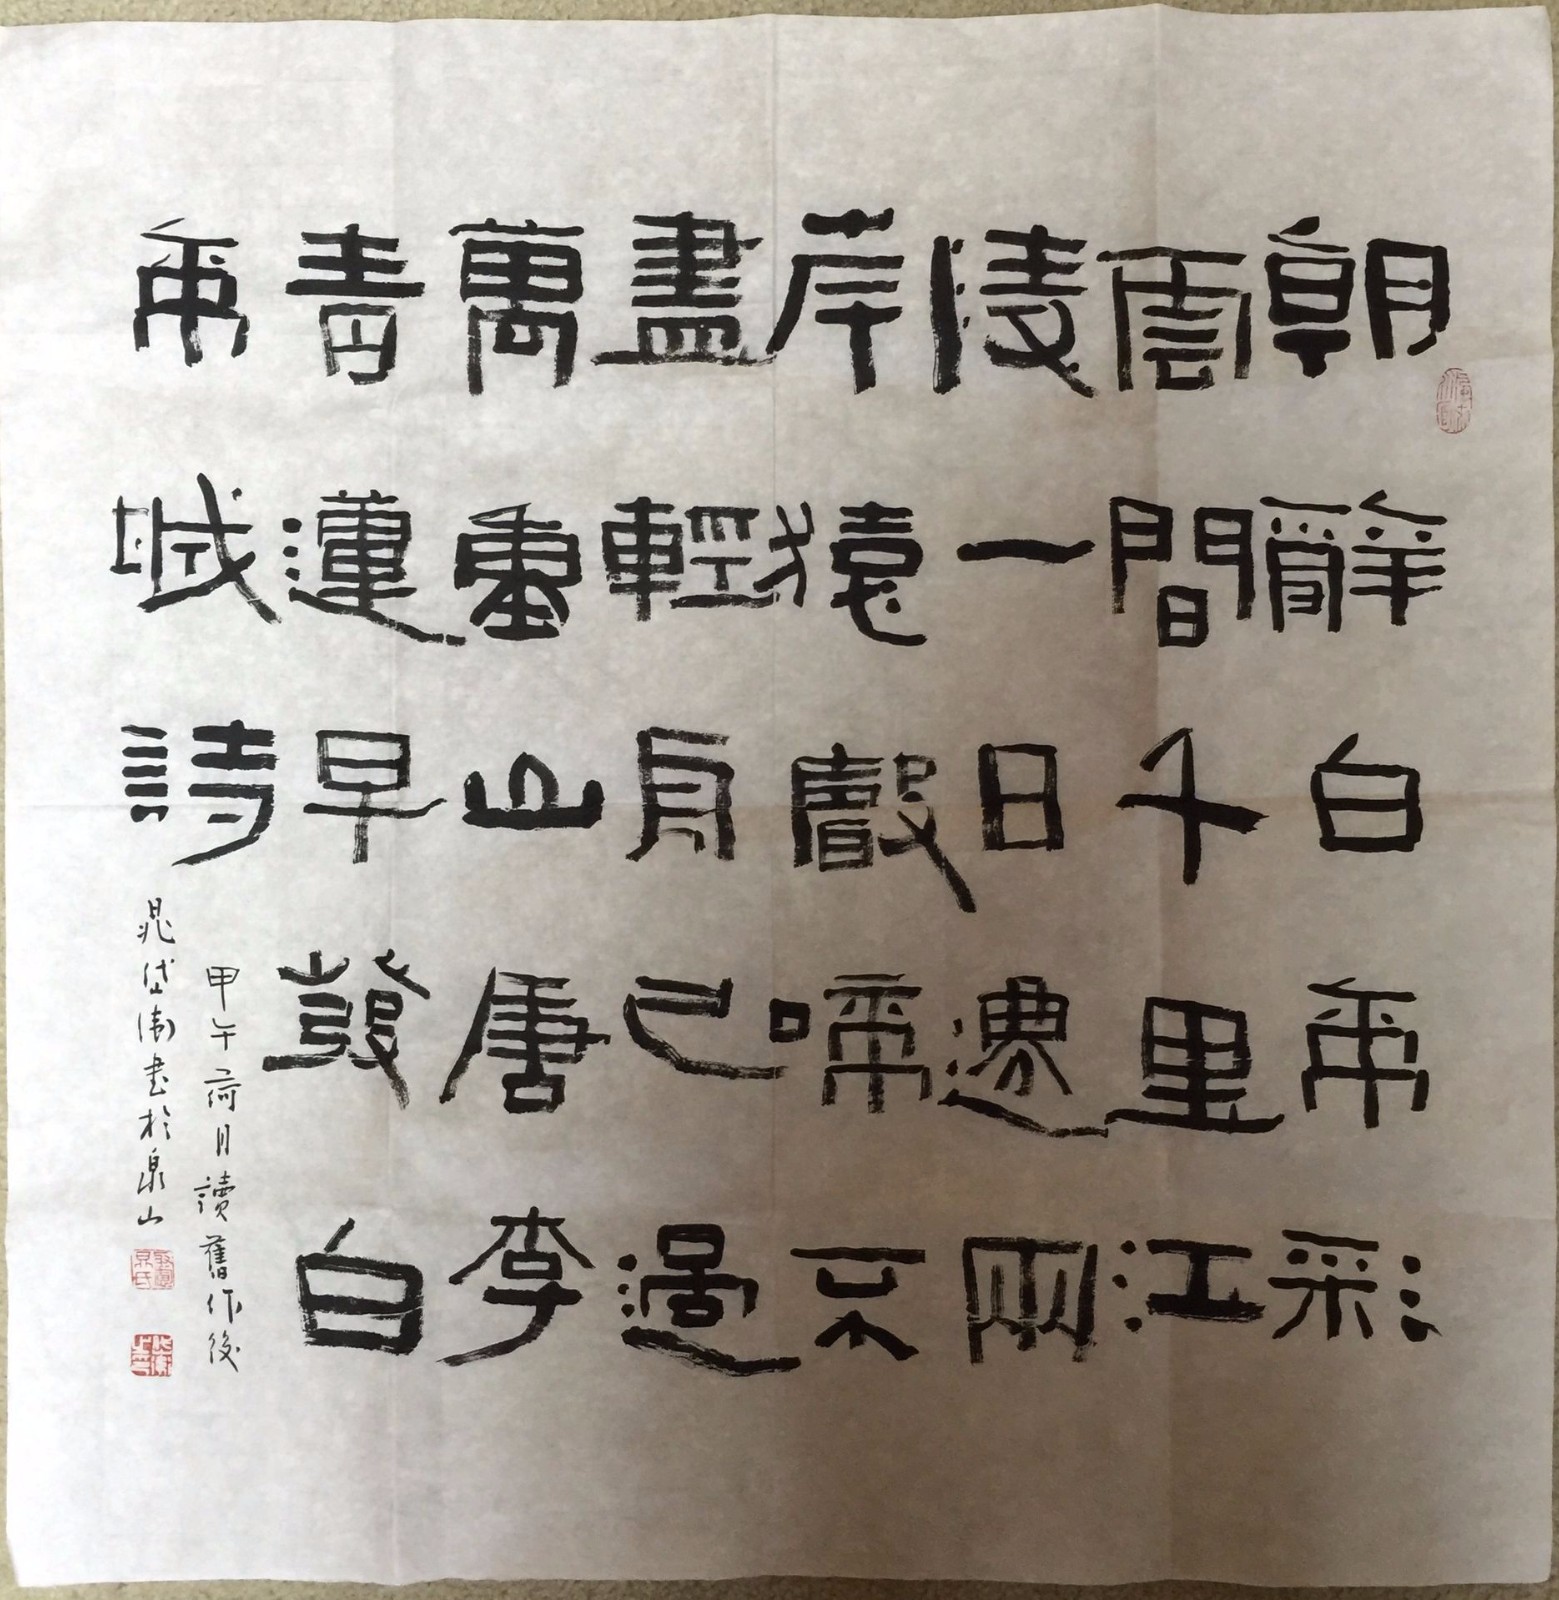 朝辭白帝彩
雲間千里江
陵一日還兩
岸猿聲啼不
盡輕舟已過
萬重山唐李
青蓮早發白
帝城詩
甲午荷月讀舊作後
晁岱衛書於泉山